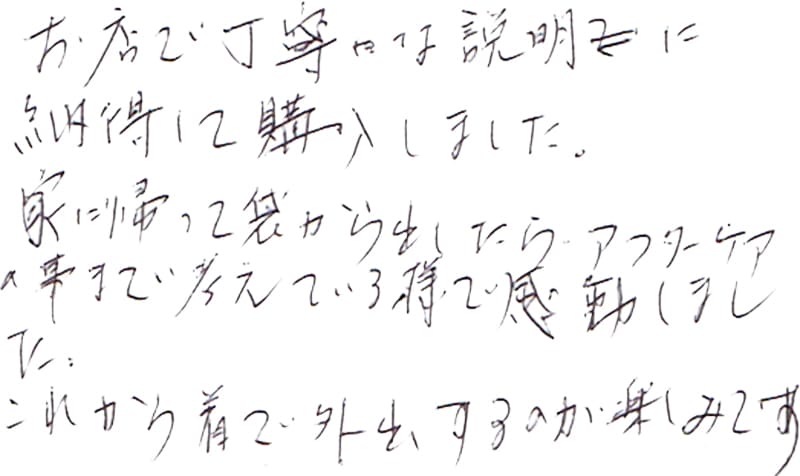 お店で丁寧な説明に
納得して購入しました。
家に帰って袋から出したら、アフターケア
の事まで考えている様で感動しまし
た。
これから着て外出するのが楽しみです